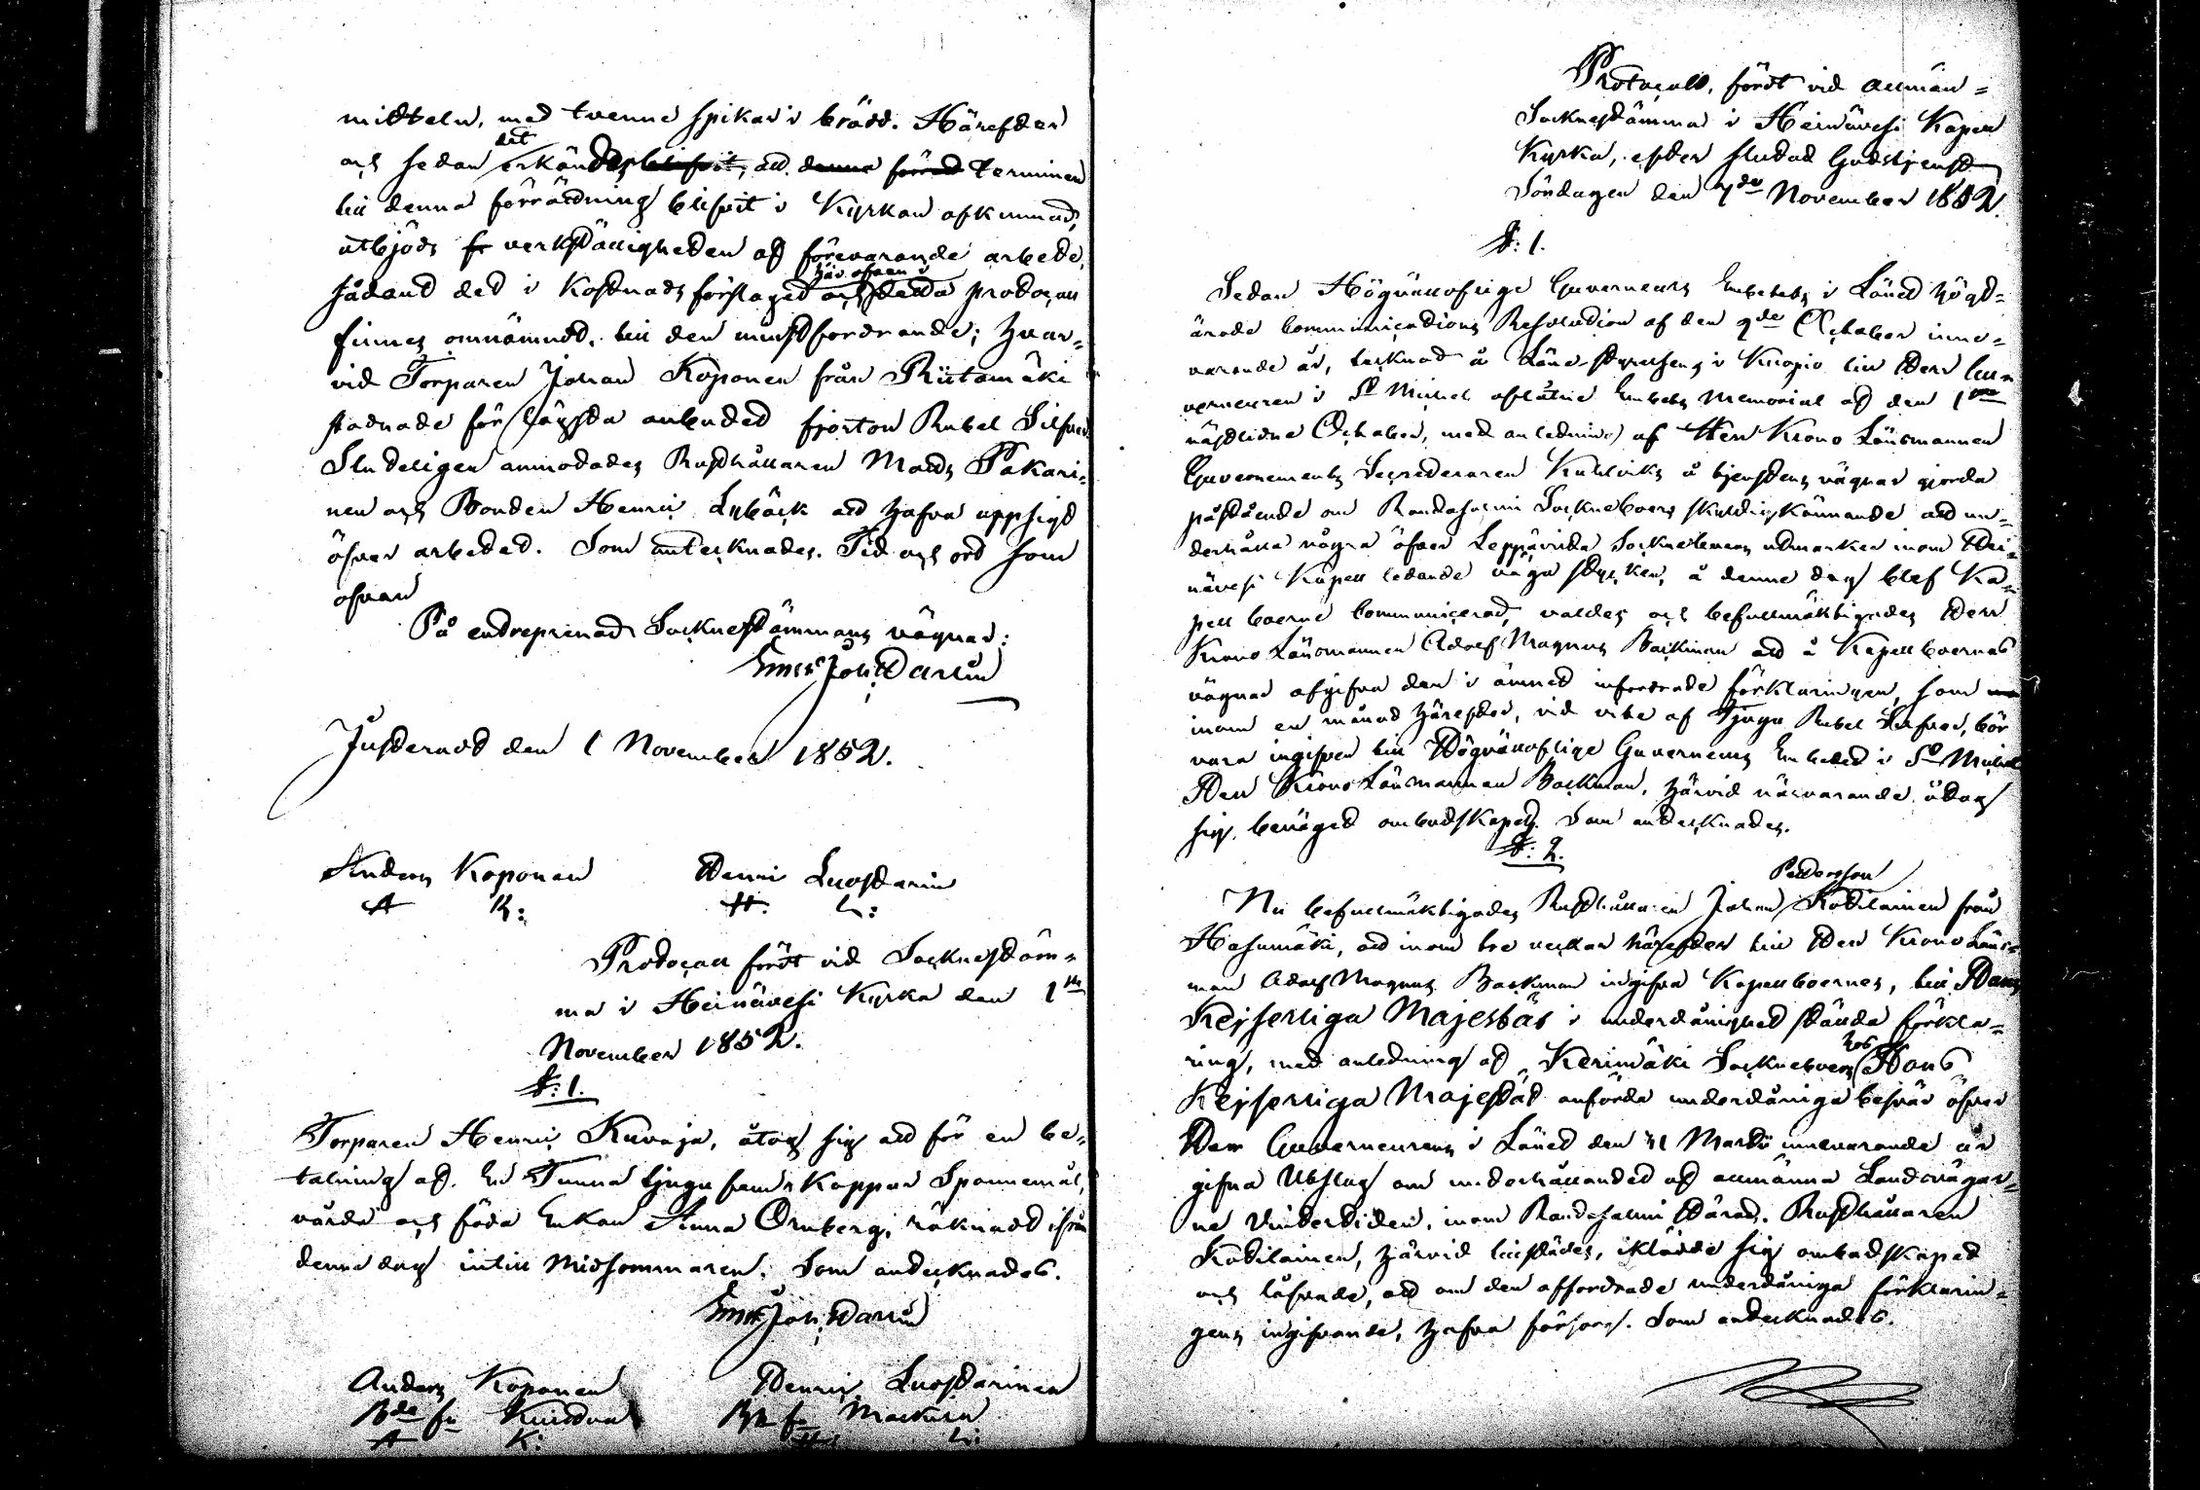 mitteln, med tvenne spikar i brädd. Härefter
och sedan det erkändes blifvit, att denna förrätt terminen
till denna förrättning blifvit i Kyrkan afkunnad,
utbjöds fr verkställigheten af förevarande arbete,
sådant det i Kostnads förslaget och detta här ofvan i protocoll
finnes omnämndt, till den minstfordrande; hvar-
vid Torparen Johan Koponen från Riitamäki
stadnade för lägsta anbudet fjorton Rubel Silfver
Sluteligen anmodades Rusthållaren Matts Pakari-
nen och Bonden Henric Lybäck att hafva uppsigt
öfver arbetet. Som antecknades. Tid och ort som
ofvan
På entreprenad Socknestämmans vägnar:
Joh: Warlin
Justeradt den 1 November 1852.
Anders Koponen Henric Luostarin
A K: H. L:
Protocoll fördt vid Socknestäm-
ma i Heinävesi Kyrka den 1ste
November 1852.
§: 1.
Torparen Henric Kuvaja, åtog sig att för en be-
talning af En Tunna tjugu fem Kappar Spannemål,
vårda och föda Enkan Anna Ornberg, räknadt ifrån
denna dag intill Midsommaren. Som antecknades.
Joh: Warlin
Anders Koponen Henric Luostarinen
Bde fr Bde fr
A K: H: L:
Protocoll, fördt vid allmän-
Socknestämma i Heinävesi Kapell
Kyrka, efter slutad Gudstjenst
Söndagen den 7de November 1852.
§: 1.
Sedan Högvällofliga Guverneurs Embetets i Länet högt-
ärade Communications Resolution af den 9de October inne-
varande år, tecknad å Läne Styrelsens i Kuopio till Herr Gu-
verneuren i St Michel aflåtne Embets Memorial af den 1sta
nästlidne October, med anledning af Herr Krono Länsmannen
Guvernements Secreteraren Kuhlviks å tjenstens vägnar gjorda
påstående om Randasalmi Socknеboers skyldigkännande att un-
derhålla några öfver Leppävirta Socknеboers utmarker inom Hei-
nävesi Kapell ledande väga stycken, å denna dag blef Ka-
pellboerne communicerad, valdes och befullmäktigades Herr
Krono Länsmannen Adolf Magnus Backman att å Kapellboernas
vägnar afgifva den i ämnet infordrade förklaringen, som
inom en månad härefter, vid vite af Tjugu Rubel Silfver, bör
vara ingifven till Högvällofliga Guverneurs Embetet i St Michel
Herr Krono Länsmannen Backman, härvid närvarande åtog
sig, benäget ombudskapet. Som antecknades.
§: 2.
Nu befullmäktigades Rusthållaren Johan Pettersson Kotilainen från
Hasumäki, att inom tre veckor härefter till Herr Krono Läns-
man Adolf Magnus Backman ingifva Kapellboernes, till Hans
Kejserliga Majestät i underdånighet stälda förkla-
ring, med anledning af Kerimäki Socknеboers hos Hans
Kejserliga Majestät anförda underdåniga besvär öfver
Herr Guverneurens i Länet den 11 Martii innevarande år
gifna Utslag om underhållandet af allmänna Landsvägar-
ne Vintertiden, inom Randasalmi Härad. Rusthållaren
Kotilainen, härvid tillstädes, iklädde sig ombudskapet
och låfvade, att om den affordrade underdåniga förklarin-
gens ingifvande, hafva försorg. Som antecknades.